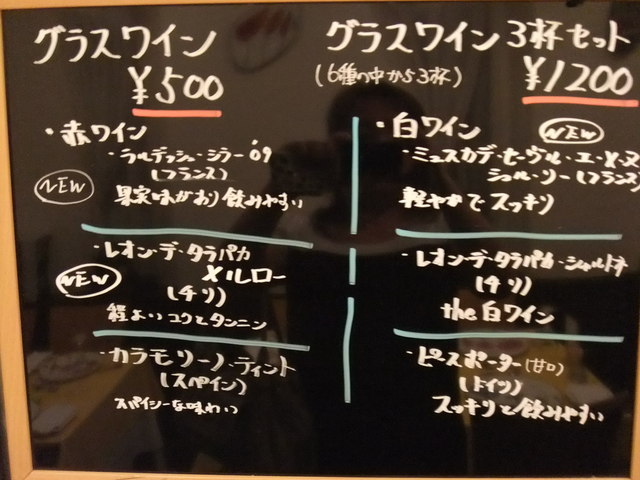 グラスワイン
¥500
グラスワイン3杯セット
(6種の中から3杯)
¥1200
・赤ワイン
・ラルデッシュ・シラー '09
(フランス)
NEW
果実味があり飲みやすい
・レオン・デ・タラパカ
メルロー
NEW
(チリ)
程よいコクとタンニン
・カラモリーノ・ティント
(スペイン)
スパイシーな味わい
・白ワイン
NEW
・ミュスカデ・セーヴル・エ・メーヌ
シュル・リー(フランス)
軽やかでスッキリ
・レオン・デ・タラパカ・シャルドネ
(チリ)
the白ワイン
・ピースポーター(甘口)
(ドイツ)
スッキリと飲みやすい